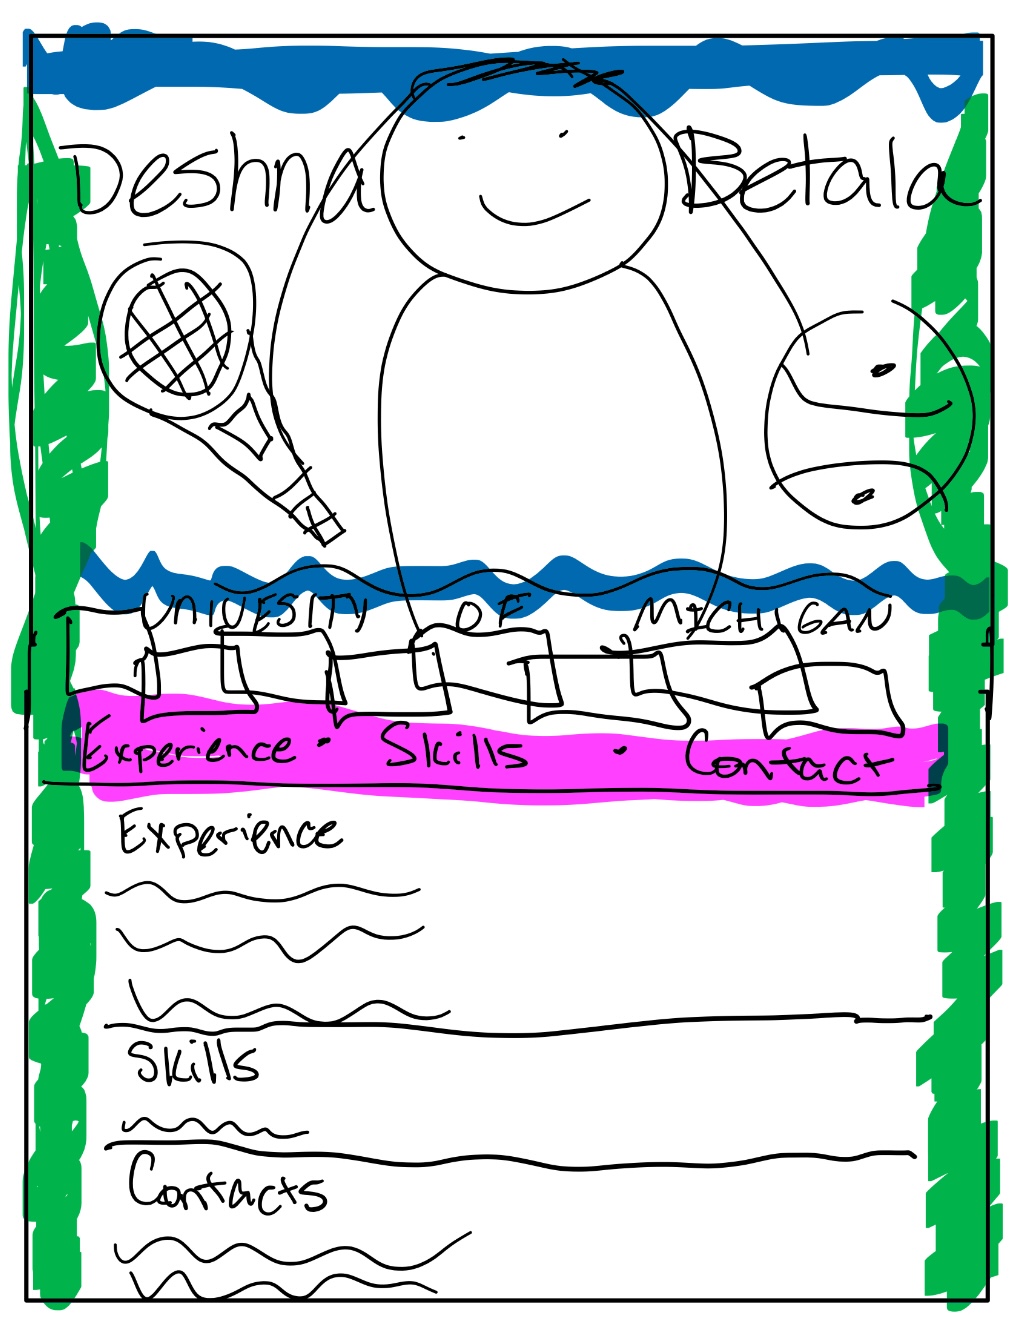 Deshna Betala
UNIVESITY OF MICHIGAN
Experience · Skills · Contact
Experience
Skills
Contacts